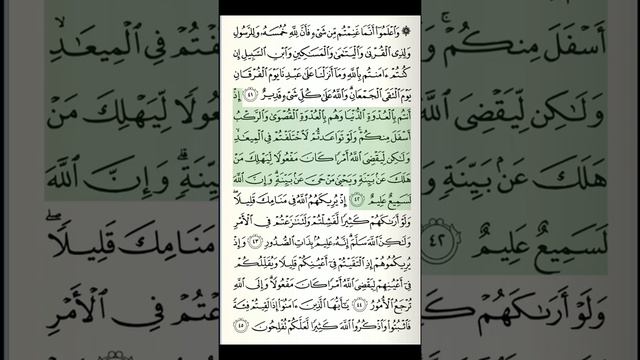 ۞ وَٱعْلَمُوٓا۟ أَنَّمَا غَنِمْتُم مِّن شَىْءٍ فَأَنَّ لِلَّهِ خُمُسَهُۥ وَلِلرَّسُولِ
وَلِذِى ٱلْقُرْبَىٰ وَٱلْيَتَٰمَىٰ وَٱلْمَسَٰكِينِ وَٱبْنِ ٱلسَّبِيلِ إِن
كُنتُمْ ءَامَنتُم بِٱللَّهِ وَمَآ أَنزَلْنَا عَلَىٰ عَبْدِنَا يَوْمَ ٱلْفُرْقَانِ
يَوْمَ ٱلْتَقَى ٱلْجَمْعَانِ وَٱللَّهُ عَلَىٰ كُلِّ شَىْءٍ قَدِيرٌ ٤١ إِذْ
أَنتُم بِٱلْعُدْوَةِ ٱلدُّنْيَا وَهُم بِٱلْعُدْوَةِ ٱلْقُصْوَىٰ وَٱلرَّكْبُ
أَسْفَلَ مِنكُمْ وَلَوْ تَوَاعَدتُّمْ لَٱخْتَلَفْتُمْ فِى ٱلْمِيعَٰدِ
وَلَٰكِن لِّيَقْضِىَ ٱللَّهُ أَمْرًا كَانَ مَفْعُولًا لِّيَهْلِكَ مَنْ
هَلَكَ عَنۢ بَيِّنَةٍ وَيَحْيَىٰ مَنْ حَىَّ عَنۢ بَيِّنَةٍ وَإِنَّ ٱللَّهَ
لَسَمِيعٌ عَلِيمٌ ٤٢ إِذْ يُرِيكَهُمُ ٱللَّهُ فِى مَنَامِكَ قَلِيلًا
وَلَوْ أَرَىٰكَهُمْ كَثِيرًا لَّفَشِلْتُمْ وَلَتَنَٰزَعْتُمْ فِى ٱلْأَمْرِ
وَلَٰكِنَّ ٱللَّهَ سَلَّمَ إِنَّهُۥ عَلِيمٌۢ بِذَاتِ ٱلصُّدُورِ ٤٣ وَإِذْ
يُرِيكُمُوهُمْ إِذِ ٱلْتَقَيْتُمْ فِىٓ أَعْيُنِكُمْ قَلِيلًا وَيُقَلِّلُكُمْ
فِىٓ أَعْيُنِهِمْ لِيَقْضِىَ ٱللَّهُ أَمْرًا كَانَ مَفْعُولًا وَإِلَى ٱللَّهِ
تُرْجَعُ ٱلْأُمُورُ ٤٤ يَٰٓأَيُّهَا ٱلَّذِينَ ءَامَنُوٓا۟ إِذَا لَقِيتُمْ فِئَةً
فَٱثْبُتُوا۟ وَٱذْكُرُوا۟ ٱللَّهَ كَثِيرًا لَّعَلَّكُمْ تُفْلِحُونَ ٤٥
أَسْفَلَ مِنكُمْ
وَلَٰكِن لِّيَقْضِىَ
هَلَكَ عَنۢ بَيِّنَةٍ
لَسَمِيعٌ عَلِيمٌ ٤٢
وَلَوْ أَرَىٰكَهُمْ
فِى ٱلْمِيعَٰدِ
لِّيَهْلِكَ مَنْ
وَإِنَّ ٱللَّهَ
مَنَامِكَ قَلِيلًا
فِى ٱلْأَمْرِ